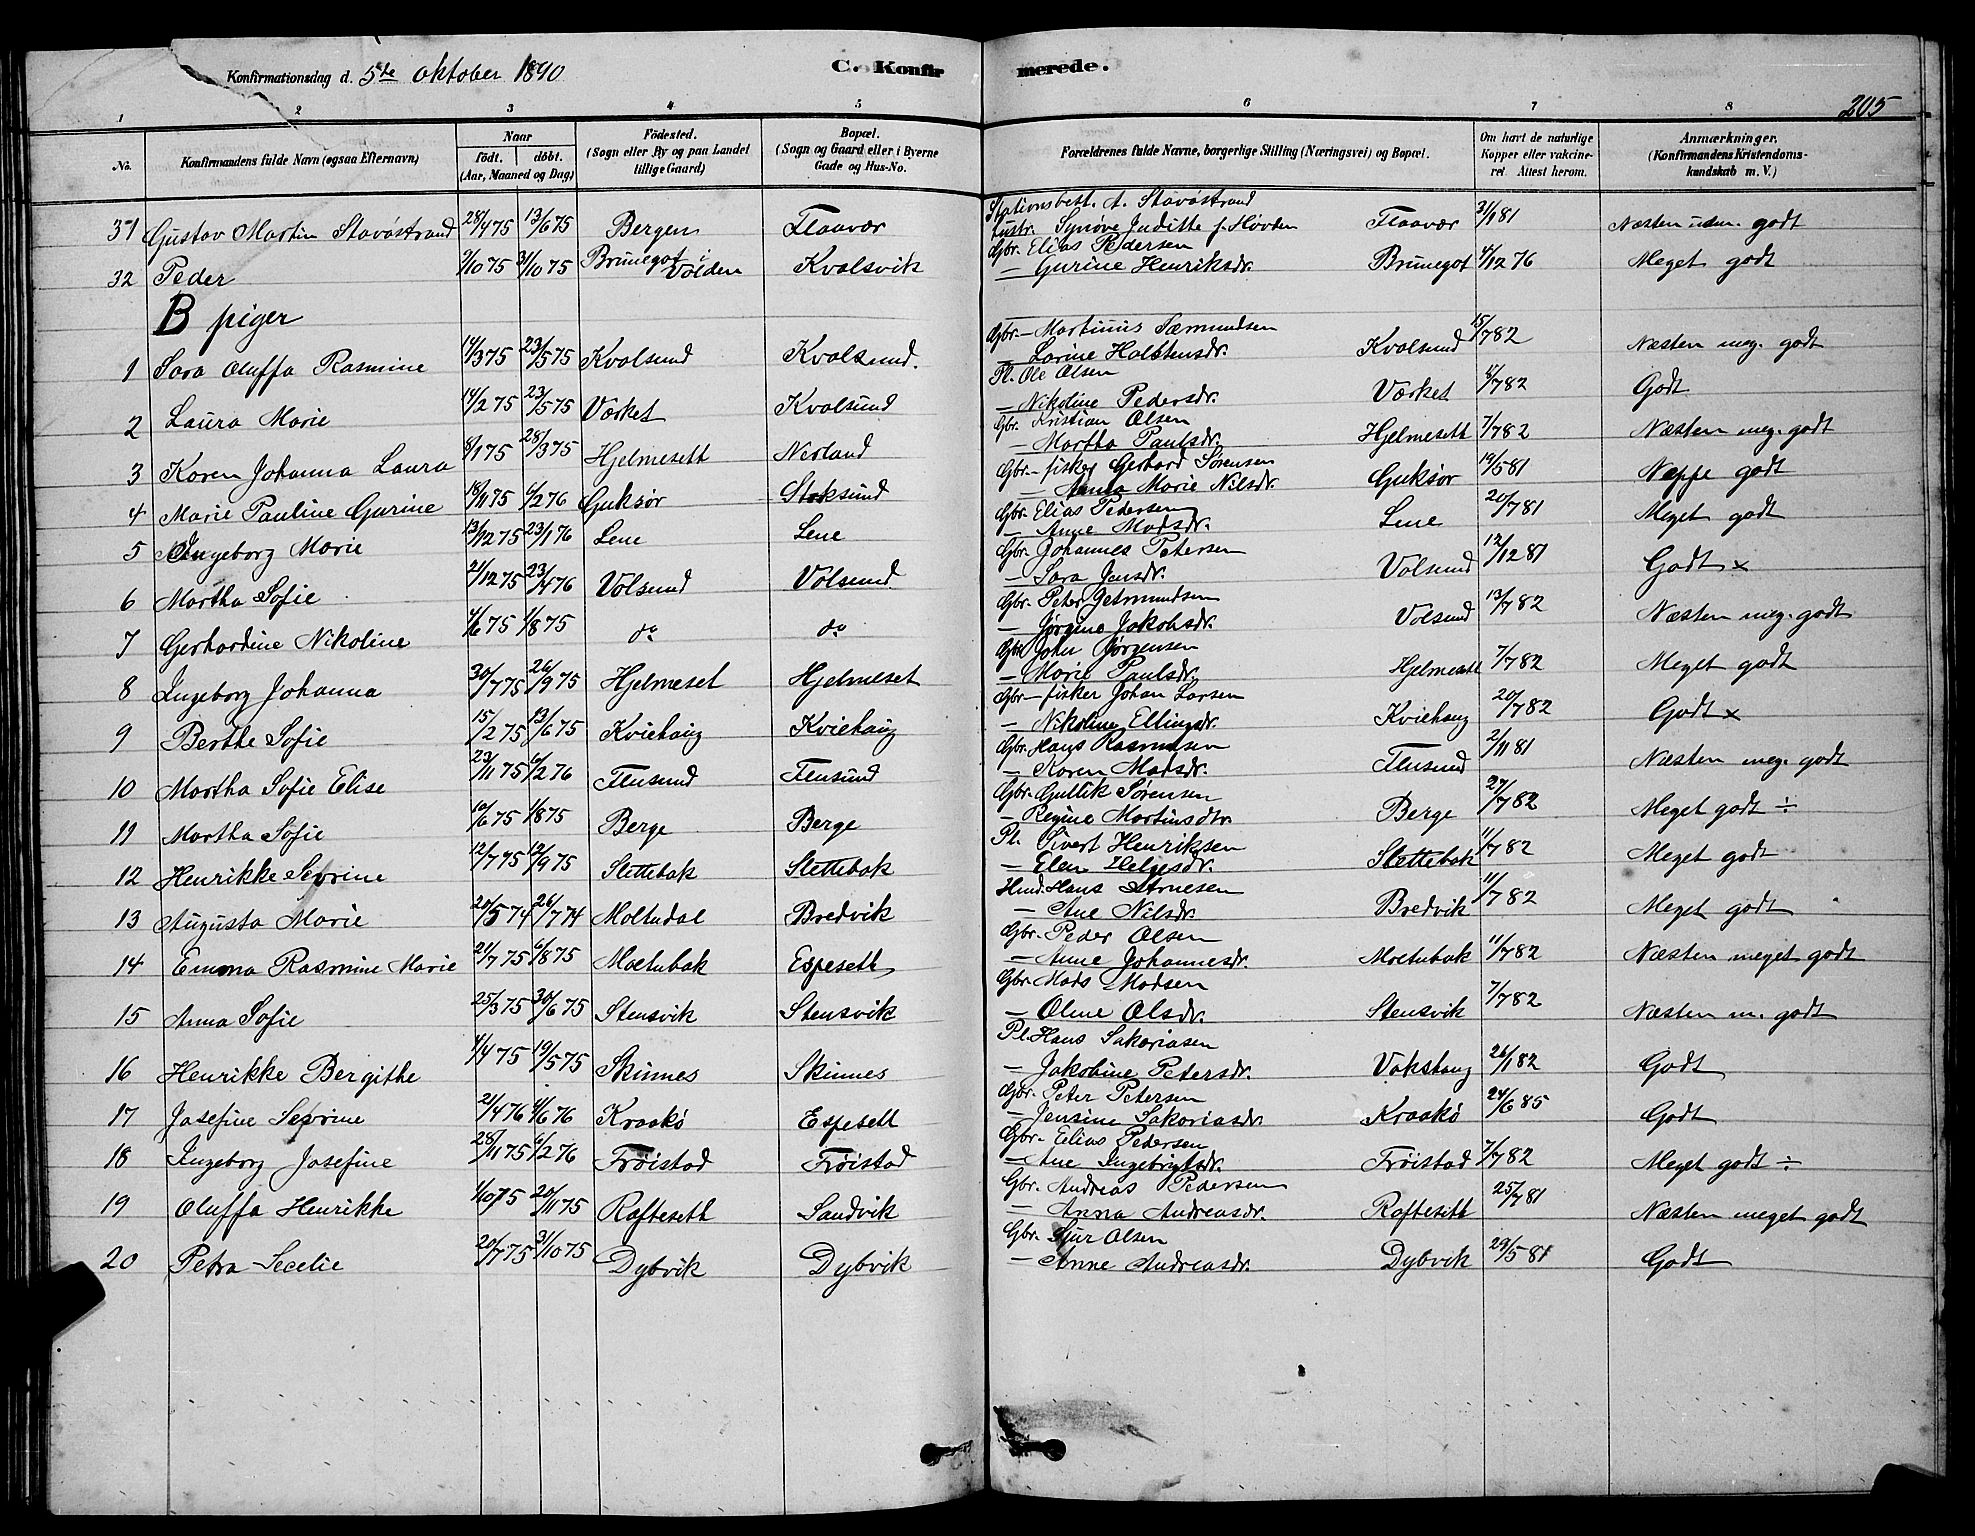 Konfirmationsdag d. 5te oktober 1890 C. Konfirmerede.
205
1 2 3 4 5 6 7 8
No. Konfirmandens fulde Navn (ogsaa Efternavn) Naar født. døbt. (Aar, Maaned og Dag) Fødested. (Sogn eller By og paa Landet tillige Gaard) Bopæl. (Sogn og Gaard eller i Byerne Gade og Hus-No. Forældrenes fulde Navne, borgerlige Stilling (Næringsvei) og Bopæl. Om havt de naturlige Kopper eller vakcineret. Attest herom. Anmærkninger. (Konfirmandens Kristendomskundskab m. V.)
Stationsbest. A. Stavøstrand
31 Gustav Martin Stavøstrand 28/4 75 13/6 75 Bergen Flaavær Hustr. Synøve Juditte f. Hovden Flaavær 31/1 81 Næsten udm. godt
Gbr. Elias Pedersen
32 Peder 9/10 75 31/10 75 Brunegot i Volden Kvalsvik — Gurine Henriksdr. Brunegot 4/12 76 Meget godt
B piger
Gbr. — Martinus Sæmundsen
1 Sara Oluffa Rasmine 14/3 75 23/5 75 Kvalsund Kvalsund. — Larine Holstensdr. Kvalsund 15/7 82 Næsten meg. godt
Pl. Ole Olsen
2 Laura Marie 14/2 75 23/5 75 Værket Kvalsund — Nikoline Pedersdr. Værket 8/7 82 Godt
Gbr. Kristian Olsen
3 Karen Johanna Laura 8/1 75 28/3 75 Hjelmesett Nerland — Martha Paulsdr. Hjelmesett 7/7 82 Næsten meg. godt
Gbr. — fisker Gerhard Sørensen
4 Marie Pauline Gurine 18/11 75 6/2 76 Guksør Stoksund — Anna Marie Nilsdr. Guksør 19/5 81 Neppe godt
Gbr. Elias Pedersen
5 Ingeborg Marie 13/12 75 23/1 76 Lene Lene — Anne Madsdr. Lene 20/7 81 Meget godt
Gbr. Johannes Petersen
6 Martha Sofie 21/12 75 23/4 76 Volsund Volsund — Sara Jensdr. Volsund 12/12 81 Godt ×
Gbr. Peter Getmundsen
7 Gerhardine Nikoline 4/6 75 1/8 75 do do — Jørgine Jakobsdr. Volsund 13/7 82 Næsten meg. godt
Gbr. John Jørgensen
8 Ingeborg Johanna 30/7 75 26/9 75 Hjelmeset Hjelmeset — Marie Paulsdr. Hjelmesett 7/7 82 Meget godt
Gbr — fisker Johan Larsen
9 Berthe Sofie 15/2 75 13/6 75 Kviehaug Kviehaug — Nikoline Ellingsdr. Kviehaug 20/7 82 Godt ×
Gbr. Hans Rasmusen
10 Martha Sofie Elise 23/11 75 6/2 76 Flusund Flusund — Karen Madsdr. Flusund 2/11 81 Næsten meg. godt
Gbr. Gullik Sørensen
11 Martha Sofie 10/6 75 1/8 75 Berge Berge — Regine Martinsdtr. Berge 27/7 82 Meget godt ÷
Pl. Sivert Henriksen
12 Henrikke Severine 12/7 75 12/9 75 Slettebak Slettebak — Elen Helgesdr. Slettebak 11/7 82 Meget godt
Hmd. Hans Arnesen
13 Augusta Marie 20/5 74 26/7 74 Moltudal Bredvik — Ane Nilsdr. Bredvik 11/7 82 Meget godt
Gbr. Peder Olsen
14 Emma Rasmine Marie 21/7 75 6/8 75 Moltubak Espesett — Anne Johannesdr. Moltubak 11/7 82 Næsten meget godt
Gbr. Mads Madsen
15 Anna Sofie 25/3 75 30/6 75 Stensvik Stensvik — Oline Olsdr. Stensvik 7/7 82 Næsten m. godt
Pl. Hans Sakariasen
16 Henrikke Bergithe 4/4 75 19/5 75 Skinnes Skinnes — Jakobine Petersdr. Vakshaug 26/1 82 Godt
Gbr. Peter Petersen
17 Josefine Severine 2/4 76 4/6 76 Kraakø Espesett — Jensine Sakariasdr. Kraakø 24/6 85 Godt
Gbr. Elias Pedersen
18 Ingeborg Josefine 28/11 75 6/2 76 Frøistad Frøistad — Ane Ingebrigtsdr. Frøistad 7/7 82 Meget godt ÷
Gbr. Andreas Pedersen
19 Oluffa Henrikke 1/10 75 20/11 75 Raftesett Sandvik — Anna Andreasdr. Raftesett 25/7 81 Næsten meget godt
Gbr. Sjur Olsen
20 Petra Secelie 20/7 75 31/10 75 Dybvik Dybvik — Anne Andreasdr. Dybvik 29/5 81 Godt